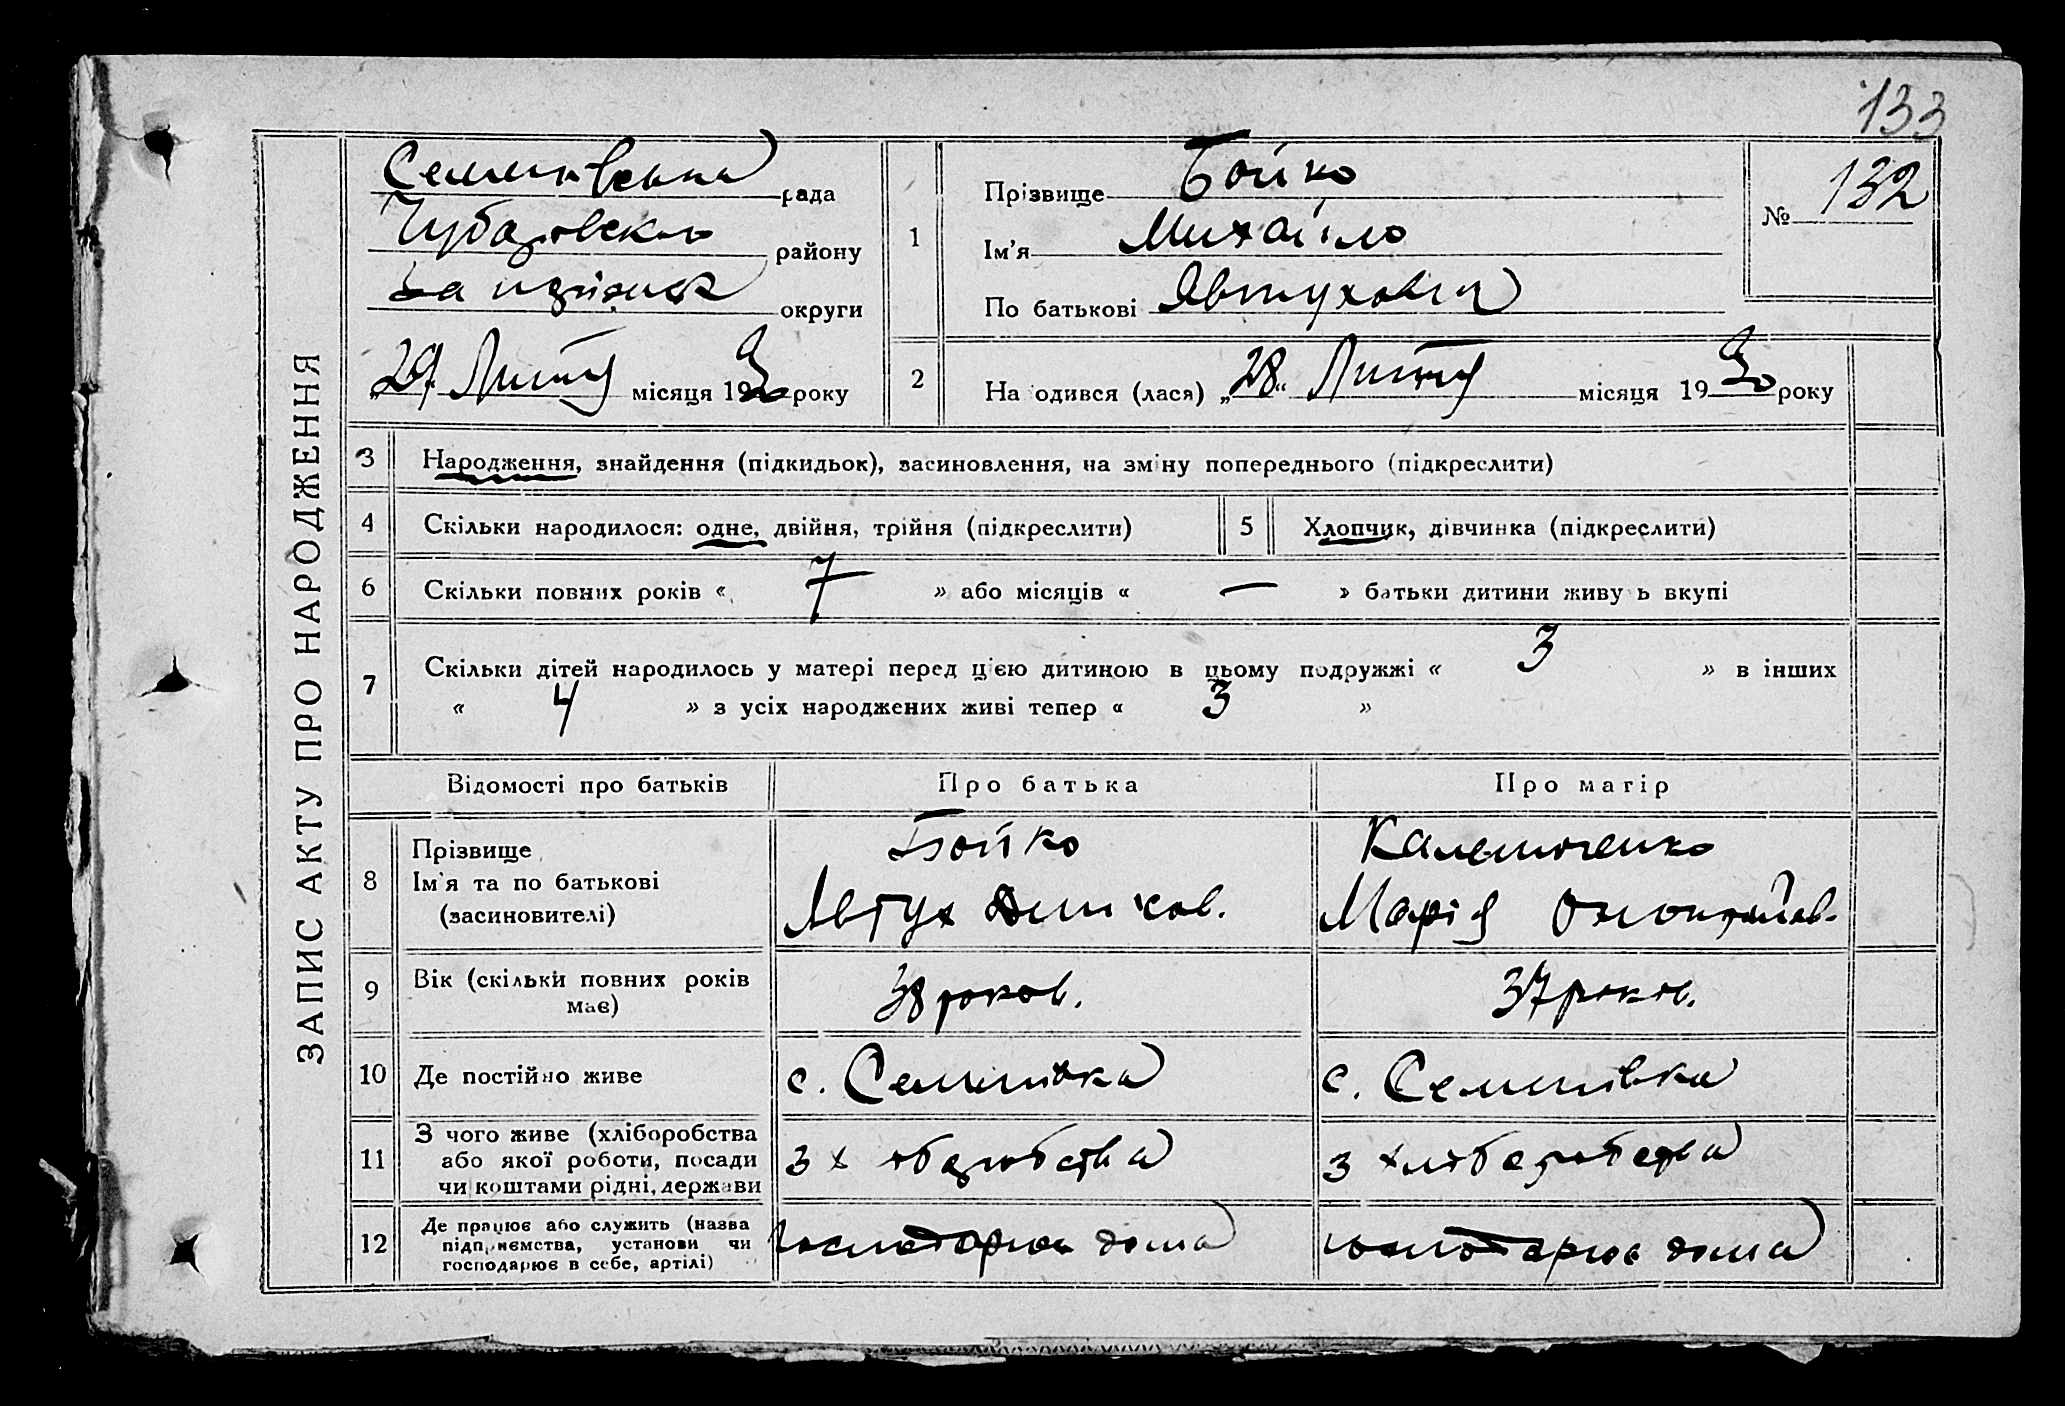 133
ЗАПИС АКТУ ПРО НАРОДЖЕННЯ
рада
району
округи
„29„ Лютня місяця 1930 року
1
Прізвище Бойко
Ім'я Михайло
По батькові Явтухович
№ 132
2
На одився (лася) „28„ Лютня місяця 1930 року
3 Народження, знайдення (підкидьок), засиновлення, на зміну попереднього (підкреслити)
4 Скільки народилося: одне, двійня, трійня (підкреслити) 5 Хлопчик, дівчинка (підкреслити)
6 Скільки повних років « 7 » або місяців « — » батьки дитини живу ь вкупі
7 Скільки дітей народилось у матері перед цією дитиною в цьому подружжі « 3 » в інших
« 4 » з усіх народжених живі тепер « 3 »
Відомості про батьків Про батька Про матір
8 Прізвище Бойко
Ім'я та по батькові Явтух Марія
(засиновителі)
9 Вік (скільки повних років має) 38 роков. 37 роков.
10 Де постійно живе с. Семенівка с. Семенівка
11 З чого живе (хліборобства або якої роботи, посади чи коштами рідні, держави з хліборобства
12 Де працює або служить (назва підприємства, установи чи господарює в себе, артілі) господарює дома господарює дома